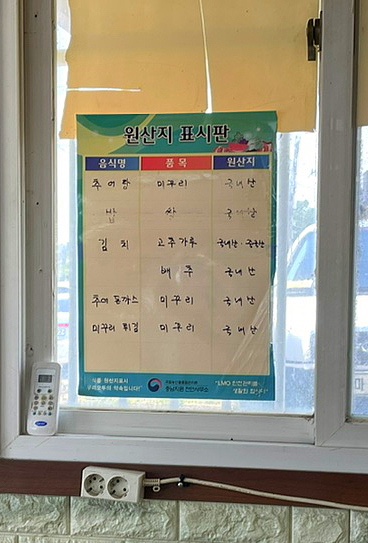 원산지 표시판
음식명 품목 원산지
추어탕 미꾸리 국내산
밥 쌀 국내산
김치 고추가루 국내산·중국산
배추 국내산
추어돈까스 미꾸리 국내산
미꾸리튀김 미꾸리 국내산
식품 원산지표시
우리모두의 약속입니다!
충남지원 천안사무소
"LMO 안전관리를
생활화 합시다"